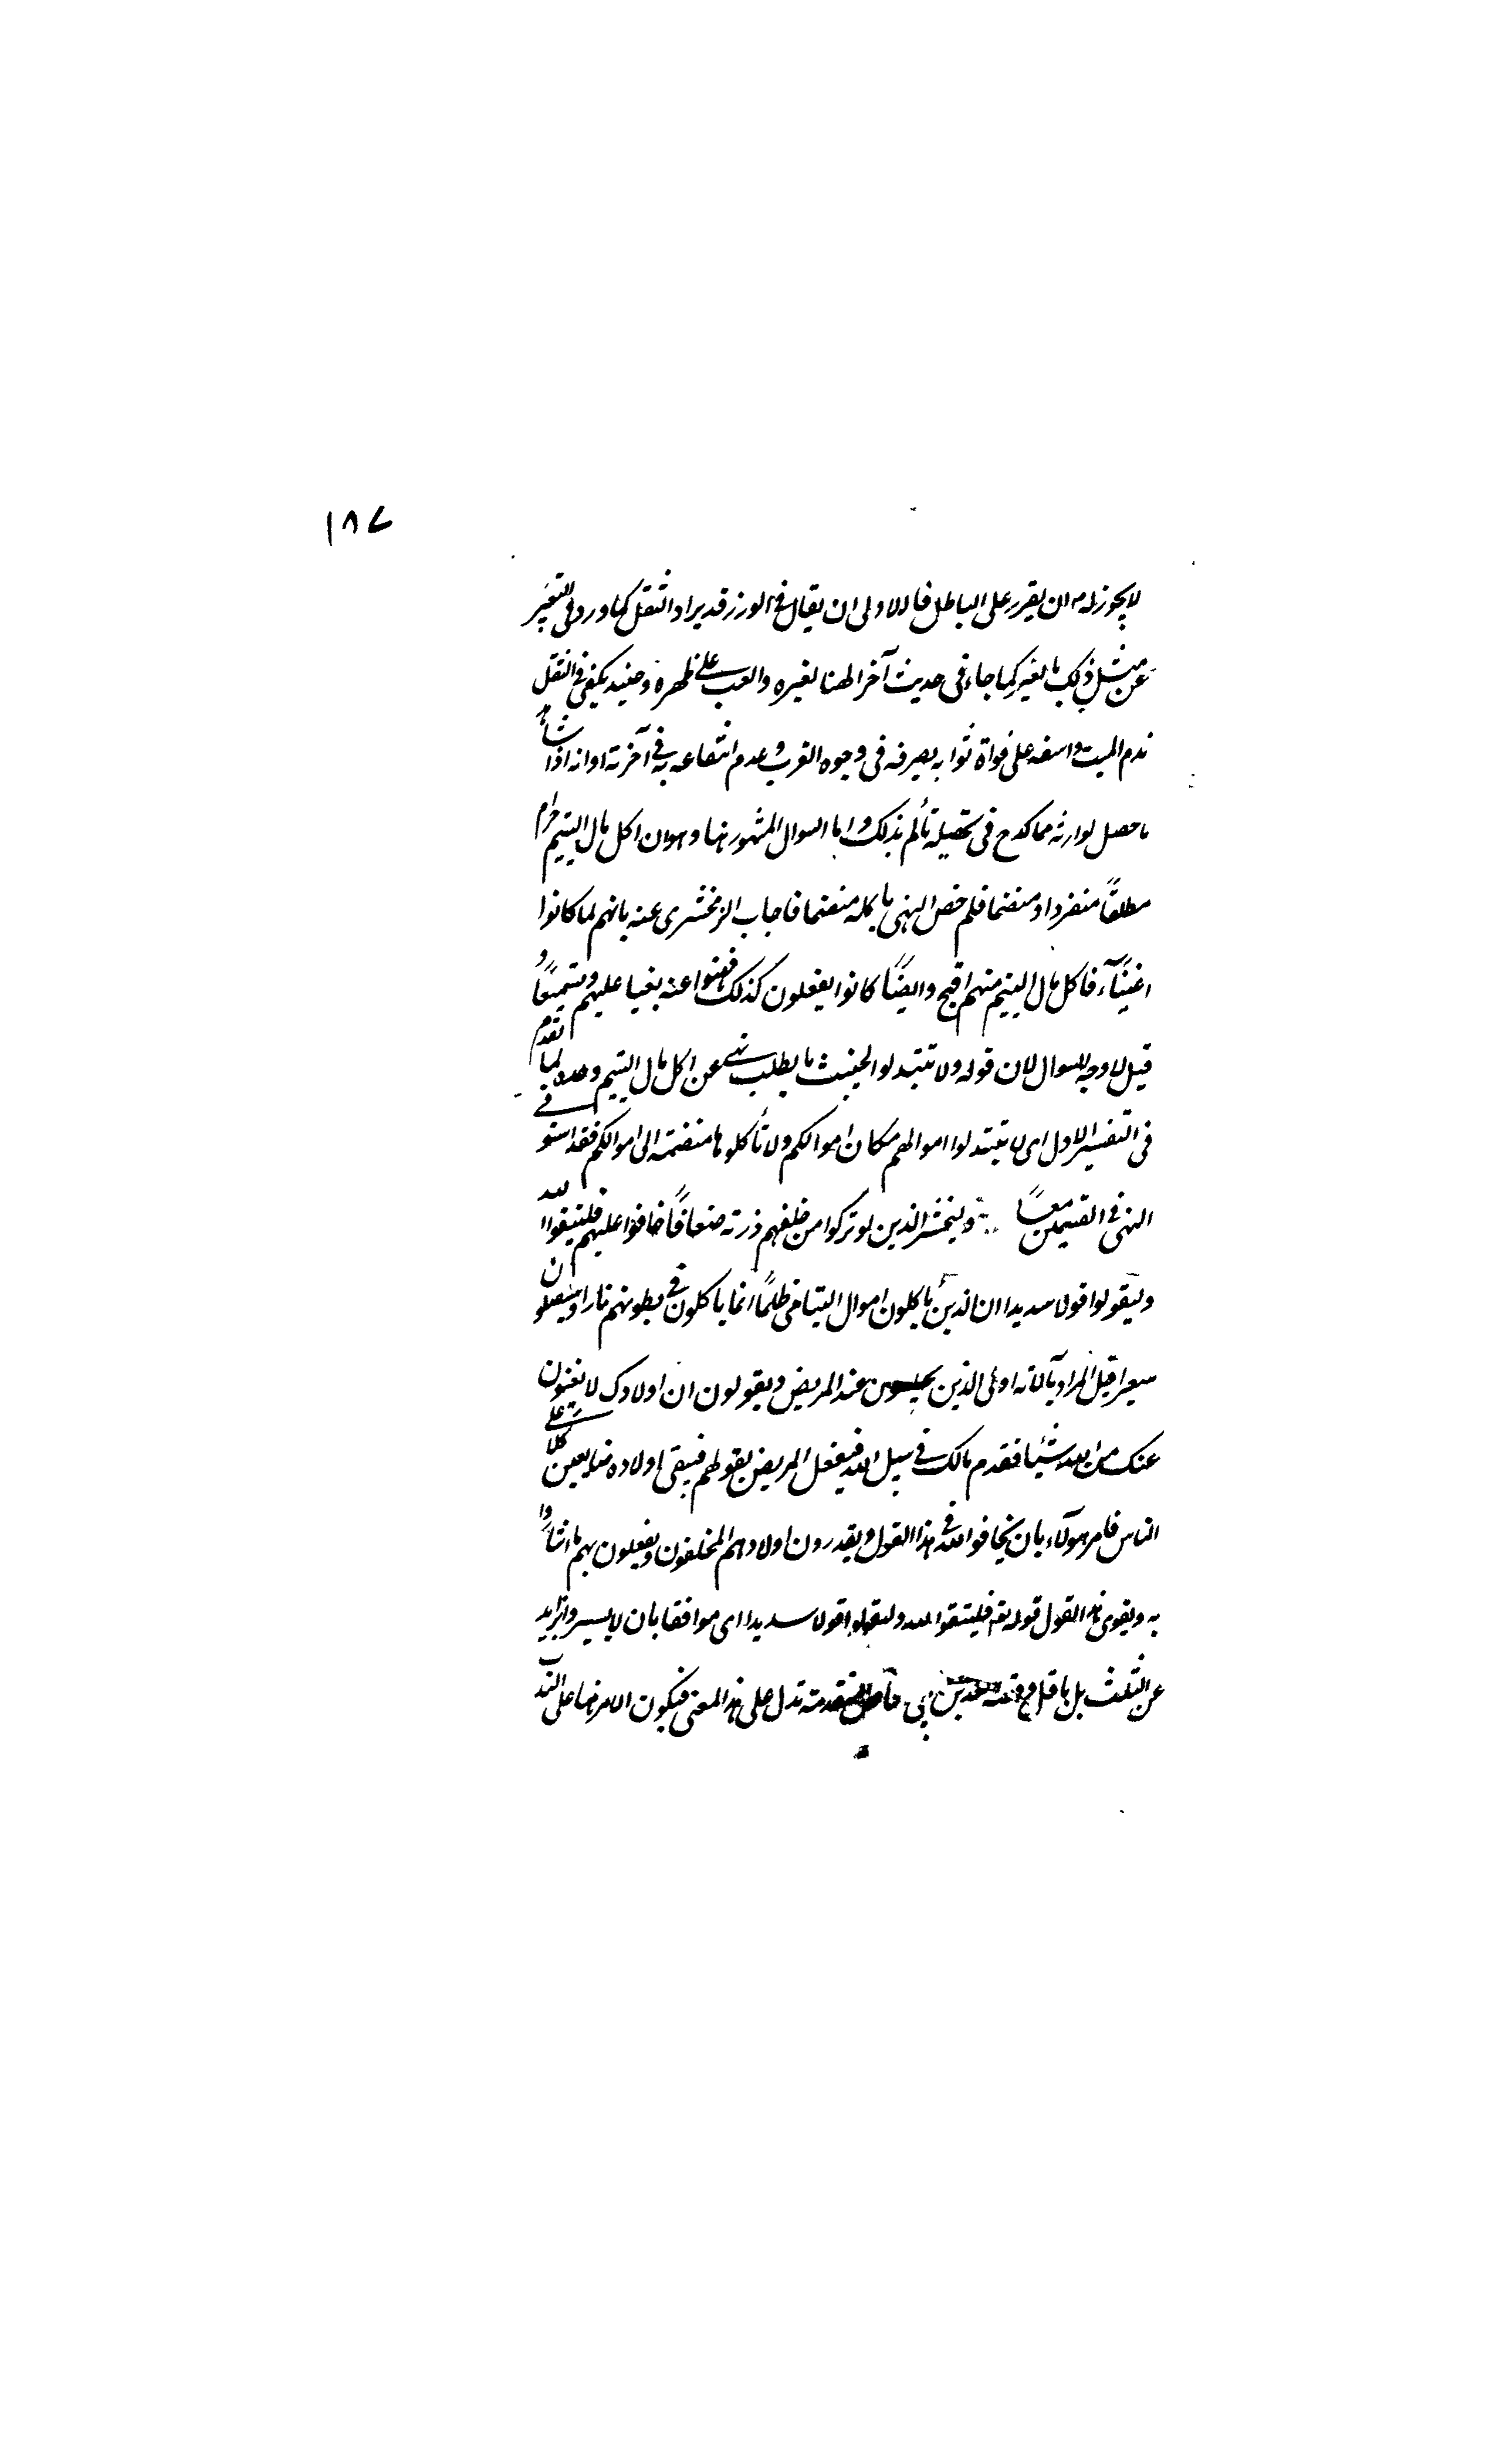 ١٨٧
لا يجوز له م ان يقرر على الباطل فالاولى ان يقال في الوزر قد يراد الثقل كما ورد في التعبير
عن مثل ذلك بالغير كما جاء في حديث آخر الهنا لغيره والعب على ظهره وحينئذ يكفي في الثقل
ندم الميت واسفه على فواة ثوابه بصرفه في وجوه القرب وعدم انتفاعه به في آخرته او انه اذا شاهد
ما حصل لوارثه مما كدح في تحصيله تألم بذلك واما السوال المشهور هنا وهو ان اكل مال اليتيم حرام
مطلقًا منفردا او منضما فلم خص النهي باكله منضما فاجاب الزمخشري عنه بانهم لما كانوا
اغنيآء فاكل مال اليتيم منهم اقبح وايضًا كانوا يفعلون كذلك فنهوا عنه بغيا عليهم وتسميعًا و
قيل لا وجه للسوال لان قوله ولا تتبدلوا الخبيث بالطيب نهي عن اكل مال اليتيم وحده لما تقدم
في التفسير الاول اى لا تتبدلوا اموالهم مكان اموالكم ولا تأكلوها منضمة الى اموالكم فقد استوفي
النهي في القسمين معًا وليخش الذين لو تركوا من خلفهم ذرية ضعافًا خافوا عليهم فليتقوا الله
وليقولوا قولا سديدا ان الذين يأكلون اموال اليتامى ظلمًا انما ياكلون في بطونهم نارا وسيصلون
سعيرا قيل المراد بالآية اولى الذين يجلسون عند المريض ويقولون ان اولادك لا يغنون
عنك من الله شيئا فقدم مالك في سبيل الله فيفعل المريض بقولهم فيبقى اولاده ضايعين كلا على
الناس فامر هولآء بان يخافوا الله في هذا القول ويقدرون اولادهم المخلفون ويفعلون بهم ما اشاروا
به ويقوى هذا القول قوله تع فليتقوا الله وليقولوا قولا سديدا اى موافقا بان لا يسير وا بزايد
عن الثلث بل باقل وقصة سعد بن ابي وقاص المتقدمة تدل على هذا المعنى فيكون الامر هنا على الندب